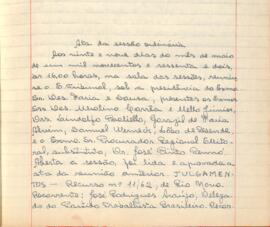 Ata da sessão ordinária
Aos vinte e nove dias do mês de maio
de um mil novecentos e sessenta e dois,
às 16,00 horas, na sala das sessões, reuniu-
se o E. Tribunal, sob a presidência do Exmo.
Sr. Des. Faria e Sousa, presentes os Exmos.
Srs. Des. Merolino Corrêa e Mello Júnior,
Drs. Lindolfo Paoliello, Gorazil de Faria
Alvim, Samuel Werneck, Lobo de Resende
e o Exmo. Sr. Procurador Regional Eleito-
ral, substituto, Dr. José Pinto Renno.
Aberta a sessão, foi lida e aprovada a
ata da reunião anterior. JULGAMEN-
TOS - Recurso nº 11/62, de Rio Novo.
Recorrente: José Rodrigues Araújo, Delega-
do do Partido Trabalhista Brasileiro.